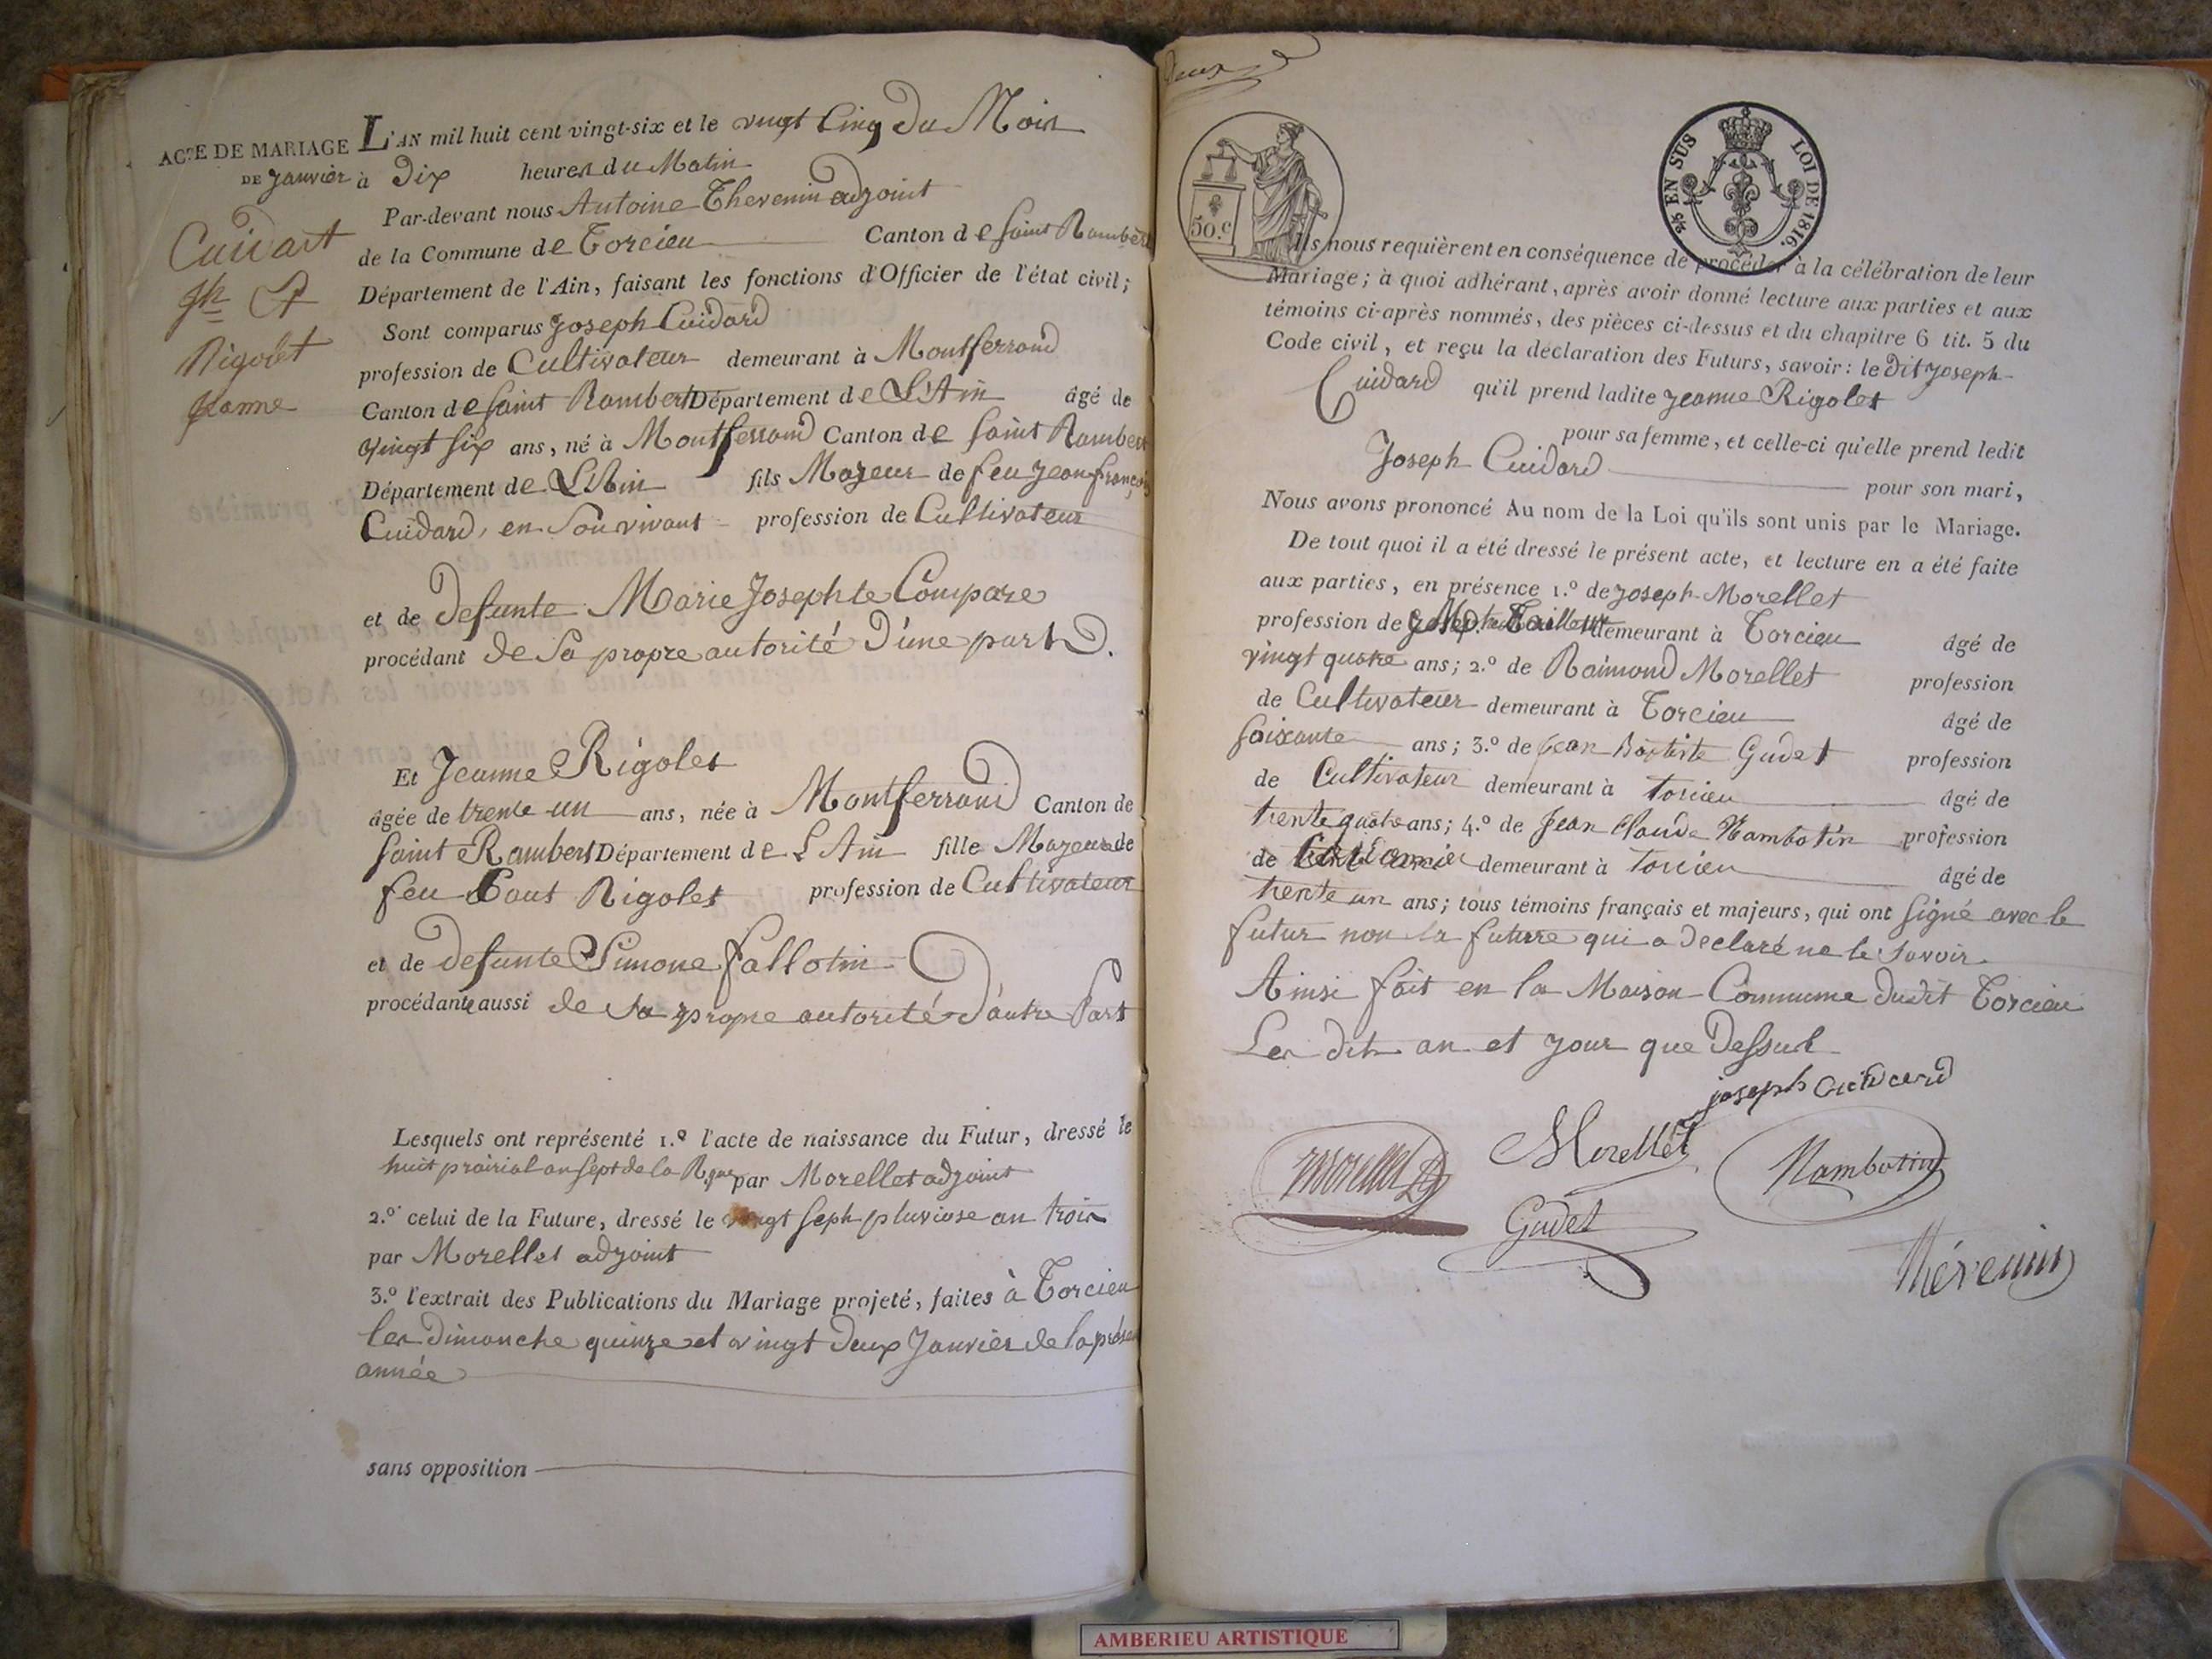 ACTE DE MARIAGE L'AN mil huit cent vingt-six et le vingt Cinq du Mois
DE Janvier à Dix heures du Matin
Par-devant nous Antoine Thevenin adjoint
de la Commune de Torcieu Canton de Saint Rambert
Département de l'Ain, faisant les fonctions d'Officier de l'état civil;
Cuidart
Jh &
Rigolet
Jeanne
Sont comparus Joseph Cuidard
profession de Cultivateur demeurant à Montferrand
Canton de Saint Rambert Département de L'Ain âgé de
vingt six ans, né à Montferrand Canton de Saint Rambert
Département de L'Ain fils Majeur de feu Jean françois
Cuidard, en Son vivant profession de Cultivateur
et de defunte Marie Josephte Compare
procédant de Sa propre autorité D'une part.
Et Jeanne Rigolet
âgée de trente un ans, née à Montferrand Canton de
Saint Rambert Département de L'Ain fille Majeure de
feu Rigolet profession de Cultivateur
et de defunte Simone fallotin
procédante aussi de Sa propre autorité D'autre Part
Lesquels ont représenté 1.º l'acte de naissance du Futur, dressé le
huit prairial an sept de la Rque par Morellet adjoint
2.º celui de la Future, dressé le vingt Seph pluviose an trois
par Morellet adjoint
3.º l'extrait des Publications du Mariage projeté, faites à Torcieu
les Dimanche quinze et vingt Deux Janvier de la présen
année
sans opposition
Deux
50.c
2/5 EN SUS LOI DE 1816.
Ils nous requièrent en conséquence de procéder à la célébration de leur
Mariage; à quoi adhérant, après avoir donné lecture aux parties et aux
témoins ci-après nommés, des pièces ci-dessus et du chapitre 6 tit. 5 du
Code civil, et reçu la déclaration des Futurs, savoir: le Dit Joseph
Cuidard qu'il prend ladite Jeanne Rigolet
pour sa femme, et celle-ci qu'elle prend ledit
Joseph Cuidard pour son mari,
Nous avons prononcé Au nom de la Loi qu'ils sont unis par le Mariage.
De tout quoi il a été dressé le présent acte, et lecture en a été faite
aux parties, en présence 1.º de Joseph Morellet
profession de demeurant à Torcieu âgé de
vingt quatre ans; 2.º de Raimond Morellet profession
de Cultivateur demeurant à Torcieu âgé de
soixante ans; 3.º de Jean Baptiste Gudet profession
de Cultivateur demeurant à Torcieu âgé de
trente quatre ans; 4.º de Jean Claude Nambotin profession
de demeurant à Torcieu âgé de
trente un ans; tous témoins français et majeurs, qui ont Signé avec le
futur non la future qui a Declaré ne le Savoir.
Ainsi fait en la Maison Commune dudit Torcieu
Les dits an et Jour que Dessus
joseph Cuidard
Morellet
Morellet
Nambotin
Gudet
Thévenin
AMBERIEU ARTISTIQUE